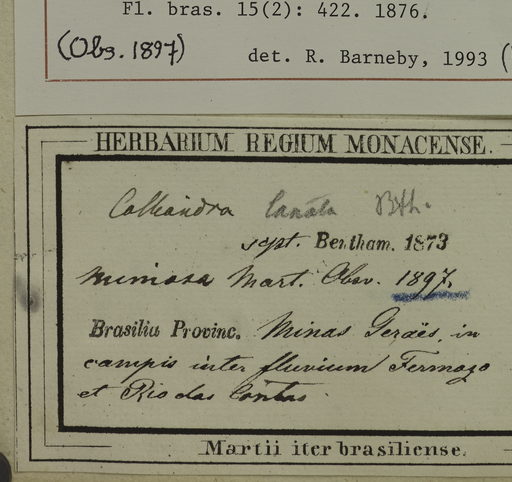 Fl. bras. 15(2): 422. 1876.
(Obs. 1897)
det. R. Barneby, 1993 (
HERBARIUM REGIUM MONACENSE.
Calliandra lanata Bth.
sept. Bentham. 1873
Mimosa Mart. Obsv. 1897.
Brasilia Provinc. Minas Geraës, in
campis inter fluvium Formozo
et Rio das Contas.
Martii iter brasiliense.